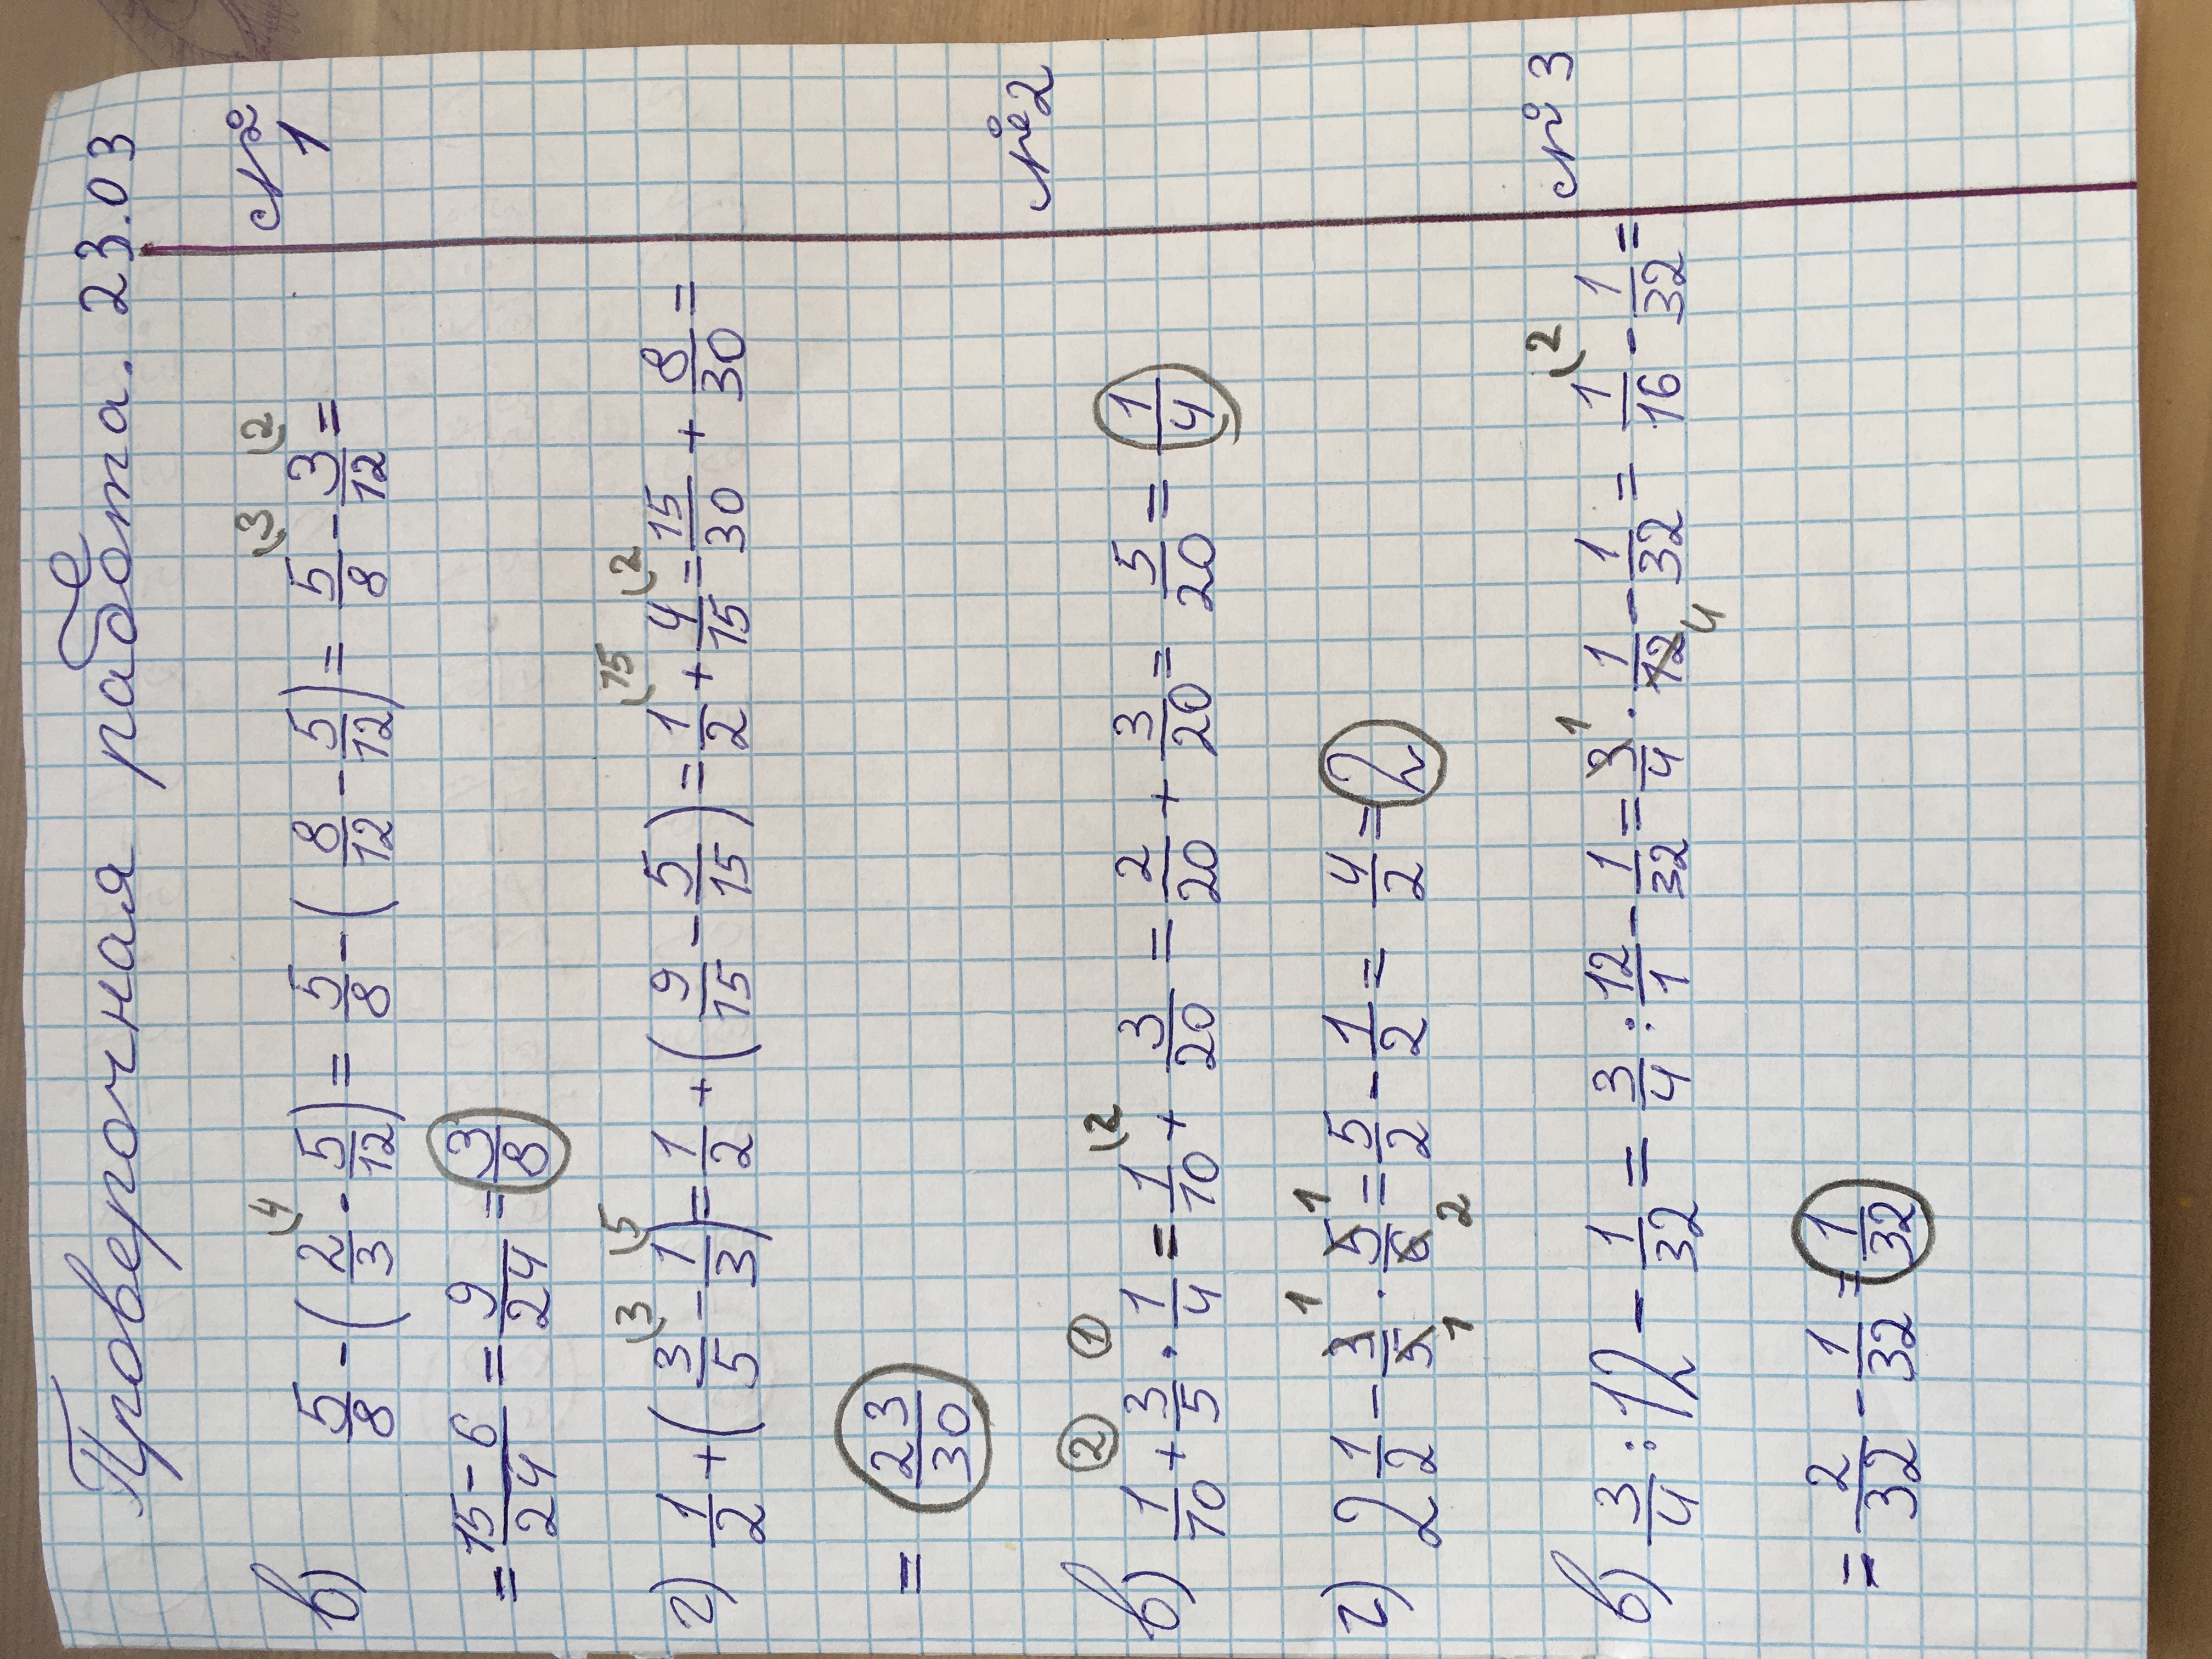 Проверочная работа. 23.03
№ 1
в) 5/8 - (2/3 - 5/12) = 5/8 - (8/12 - 5/12) = 5/8 - 3/12 =
= 15-6/24 = 9/24 = 3/8
г) 1/2 + (3/5 - 1/3) = 1/2 + (9/15 - 5/15) = 1/2 + 4/15 = 15/30 + 8/30 =
= 23/30
№2
в) 1/10 + 3/5 · 1/4 = 1/10 + 3/20 = 2/20 + 3/20 = 5/20 = 1/4
г) 2 1/2 - 3/5 · 5/6 = 5/2 - 1/2 = 4/2 = 2
№3
в) 3/4 : 12 - 1/32 = 3/4 : 12/1 - 1/32 = 3/4 · 1/12 - 1/32 = 1/16 - 1/32 =
= 2/32 - 1/32 = 1/32